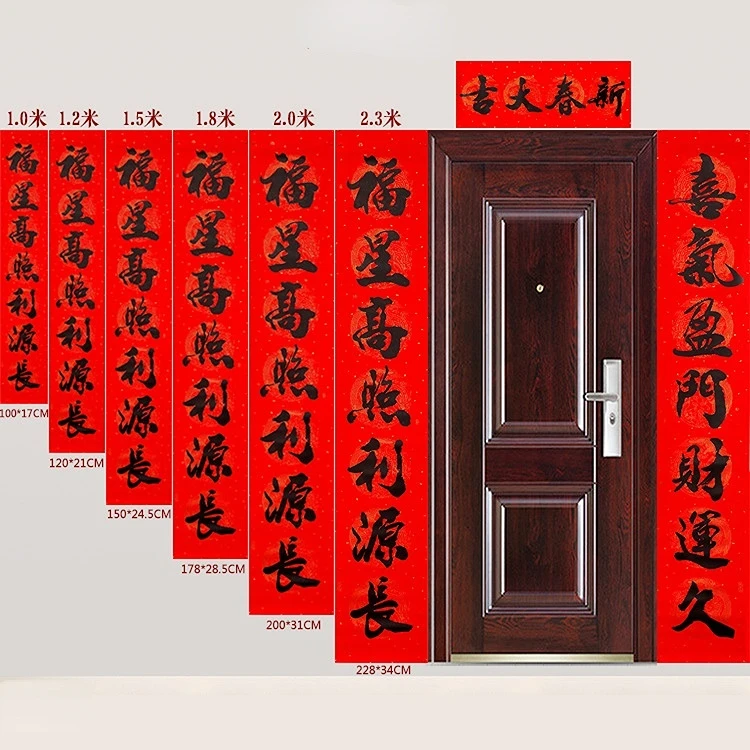 吉大春新
1.0米
1.2米
1.5米
1.8米
2.0米
2.3米
福星高照利源長
福星高照利源長
福星高照利源長
福星高照利源長
福星高照利源長
福星高照利源長
喜氣盈門財運久
100*17CM
120*21CM
150*24.5CM
178*28.5CM
200*31CM
228*34CM